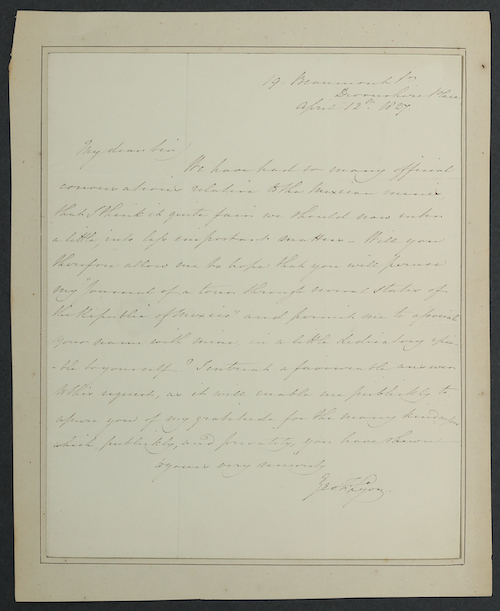 19 Beaumont St.
Devonshire Place
April 12th 1827
My dear Sir
We have had so many official
conversations relative to the Mexican mines
that I think it quite fair we should now enter
a little into less important matters – Will you
therefore allow me to hope that you will peruse
my "Journal of a tour through several States of
the Republic of Mexico" and permit me to associate
your name with mine in a little dedicatory epis-
-tle to yourself? I entreat a favourable answer
to this request, as it will enable me publickly to
assure you of my gratitude for the many kindnesses
which publickly, and privately, you have shewn
Yours very sincerely
Geo F Lyon.